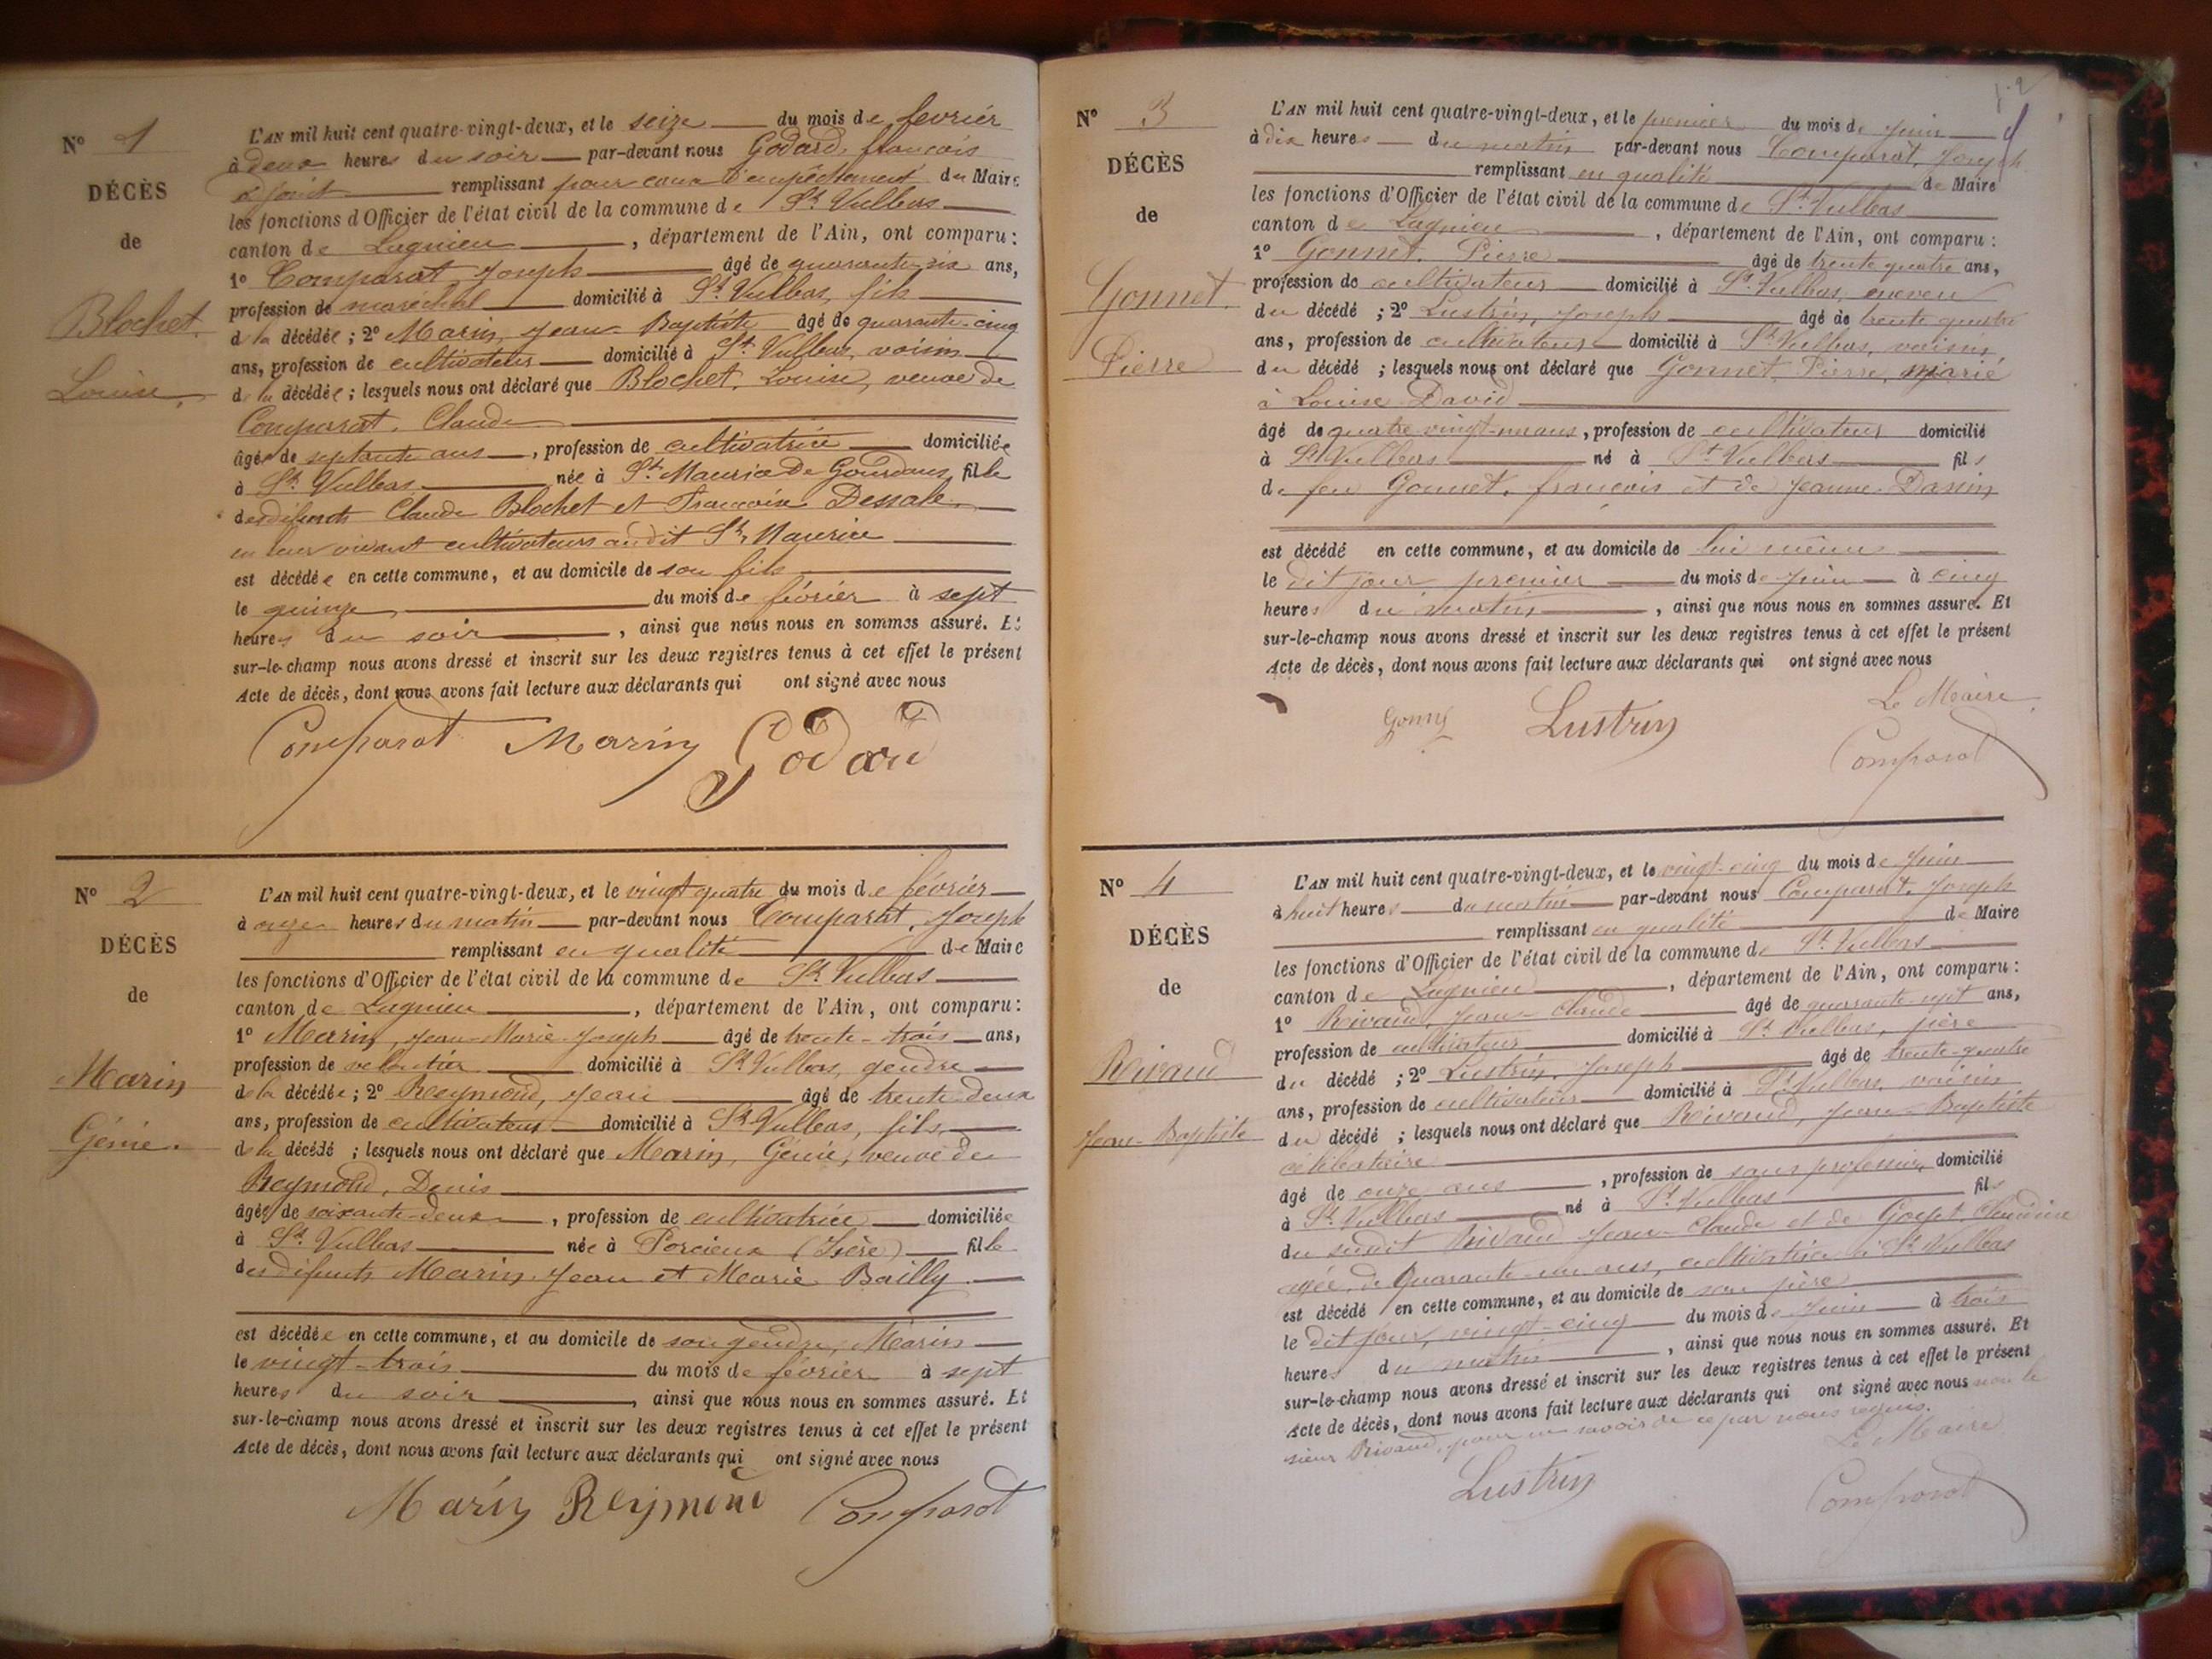 N° 1
DÉCÈS
de
Blochet.
Louise.
L'AN mil huit cent quatre-vingt-deux, et le seize du mois de fevrier
à deux heures du soir par-devant nous Godard, françois
adjoint remplissant pour cause d'empêchement du Maire
les fonctions d'Officier de l'état civil de la commune de St Vulbas
canton de Lagnieu, département de l'Ain, ont comparu :
1° Comparat Joseph âgé de quarante-six ans,
profession de marechal domicilié à St Vulbas, fils
de la décédée ; 2° Marin, Jean Baptiste âgé de quarante-cinq
ans, profession de cultivateur domicilié à St Vulbas, voisin
de la décédée ; lesquels nous ont déclaré que Blochet, Louise, veuve de
Comparat, Claude
âgée de septante ans, profession de cultivatrice domiciliée
à St Vulbas née à St Maurice De Gourdans, fille
des défunts Claude Blochet et Françoise Dessale
en leur vivant cultivateurs audit St Maurice
est décédée en cette commune, et au domicile de son fils
le quinze du mois de février à sept
heures du soir, ainsi que nous nous en sommes assuré. Et
sur-le-champ nous avons dressé et inscrit sur les deux registres tenus à cet effet le présent
Acte de décès, dont nous avons fait lecture aux déclarants qui ont signé avec nous
Comparat Marin Godard
N° 2
DÉCÈS
de
Marin
Génie.
L'AN mil huit cent quatre-vingt-deux, et le vingt quatre du mois de février
à onze heures du matin par-devant nous Comparat, Joseph
remplissant en qualité de Maire
les fonctions d'Officier de l'état civil de la commune de St Vulbas
canton de Lagnieu, département de l'Ain, ont comparu :
1° Marin, Jean-Marie-Joseph âgé de trente-trois ans,
profession de domicilié à St Vulbas, gendre
de la décédée ; 2° Reymond, Jean âgé de trente-deux
ans, profession de cultivateur domicilié à St Vulbas, fils
de la décédé ; lesquels nous ont déclaré que Marin, Génie, veuve de
Reymond, Denis
âgée de soixante-deux, profession de cultivatrice domiciliée
à St Vulbas née à Porcieux (Isère) fille
des défunts Marin Jean et Marie Bailly
est décédée en cette commune, et au domicile de son gendre, Marin
le vingt-trois du mois de février à sept
heures du soir, ainsi que nous nous en sommes assuré. Et
sur-le-champ nous avons dressé et inscrit sur les deux registres tenus à cet effet le présent
Acte de décès, dont nous avons fait lecture aux déclarants qui ont signé avec nous
Marin Reymond Comparat
N° 3
DÉCÈS
de
Gonnet.
Pierre
L'AN mil huit cent quatre-vingt-deux, et le premier du mois de Juin
à dix heures du matin par-devant nous Comparat, Joseph
remplissant en qualité de Maire
les fonctions d'Officier de l'état civil de la commune de St Vulbas
canton de Lagnieu, département de l'Ain, ont comparu :
1° Gonnet, Pierre âgé de trente quatre ans,
profession de cultivateur domicilié à St Vulbas, neveu
du décédé ; 2° Lustrin, Joseph âgé de trente quatre
ans, profession de cultivateur domicilié à St Vulbas, voisin
du décédé ; lesquels nous ont déclaré que Gonnet, Pierre, marié
à Louise David
âgé de quatre vingt-un ans, profession de cultivateur domicilié
à St Vulbas né à St Vulbas fils
de feu Gonnet, françois et de Jeanne
est décédé en cette commune, et au domicile de lui même
le dit jour premier du mois de Juin à cinq
heures du matin, ainsi que nous nous en sommes assuré. Et
sur-le-champ nous avons dressé et inscrit sur les deux registres tenus à cet effet le présent
Acte de décès, dont nous avons fait lecture aux déclarants qui ont signé avec nous
Le Maire
Lustrin
Comparat
N° 4
DÉCÈS
de
Rivaud
Jean-Baptiste
L'AN mil huit cent quatre-vingt-deux, et le vingt-cinq du mois de Juin
à huit heures du matin par-devant nous Comparat, Joseph
remplissant en qualité de Maire
les fonctions d'Officier de l'état civil de la commune de St Vulbas
canton de Lagnieu, département de l'Ain, ont comparu :
1° Rivaud, Jean-Claude âgé de quarante-sept ans,
profession de cultivateur domicilié à St Vulbas, père
du décédé ; 2° Lustrin, Joseph âgé de trente-quatre
ans, profession de cultivateur domicilié à St Vulbas, voisin
du décédé ; lesquels nous ont déclaré que Rivaud, Jean-Baptiste
célibataire
âgé de onze ans, profession de sans profession, domicilié
à St Vulbas né à St Vulbas fils
du susdit Rivaud Jean-Claude et de Claudine
agée de Quarante-un ans, cultivatrice à St Vulbas
est décédé en cette commune, et au domicile de son père
le dit jour, vingt-cinq du mois de Juin à trois
heures du matin, ainsi que nous nous en sommes assuré. Et
sur-le-champ nous avons dressé et inscrit sur les deux registres tenus à cet effet le présent
Acte de décès, dont nous avons fait lecture aux déclarants qui ont signé avec nous non le
sieur Rivaud, pour ne savoir de ce par nous requis.
Le Maire
Lustrin
Comparat